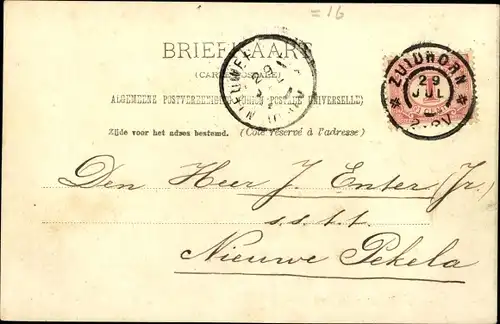 =16
BRIEFKAART
(CARTE POSTALE)
ALGEMEENE POSTVEREENIGING (UNION POSTALE UNIVERSELLE)
Zijde voor het adres bestemd. (Côté réservé à l'adresse)
ZUIDHORN
29
JUL
29
Den Heer J. Enter (Jr.)
s.s.t.t.
Nieuwe Pekela